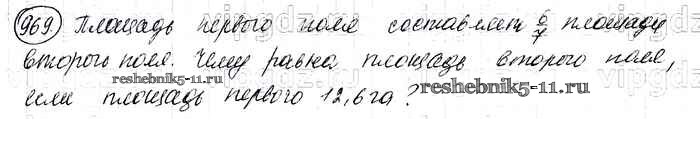 969. Площадь первого поля составляет 6/7 площади
второго поля. Чему равна площадь второго поля,
если площадь первого 12,6 га?
reshebnik5-11.ru
reshebnik5-11.ru
vipgdz.ru